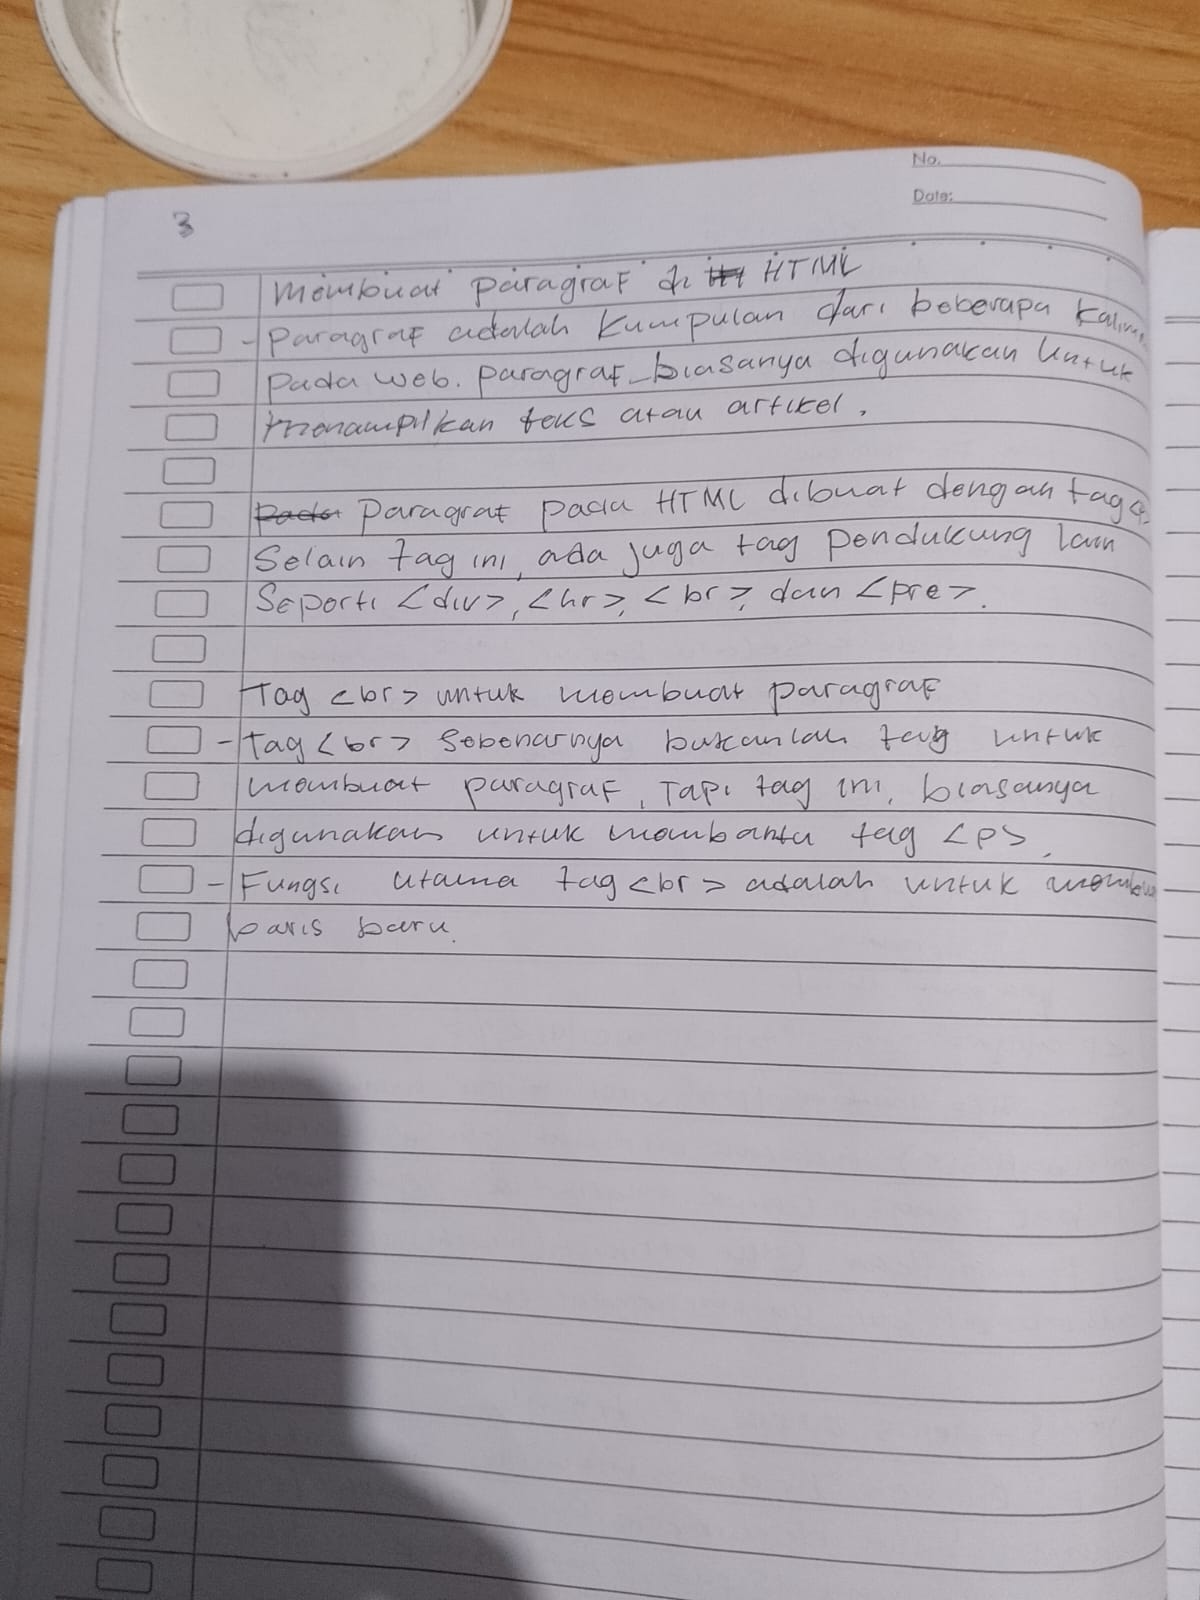 No.
Date:
3
Membuat paragraf di HTML
- Paragraf adalah kumpulan dari beberapa
pada web. paragraf biasanya digunakan untuk
menampilkan teks atau artikel.
Paragraf pada HTML dibuat dengan tag
Selain tag ini, ada juga tag pendukung lain
Seperti <div>, <hr>, <br>, dan <pre>.
Tag <br> untuk membuat paragraf
- Tag <br> sebenarnya bukanlah tag untuk
membuat paragraf, Tapi tag ini, biasanya
digunakan untuk membantu tag <p>.
- Fungsi utama tag <br> adalah untuk
baris baru.